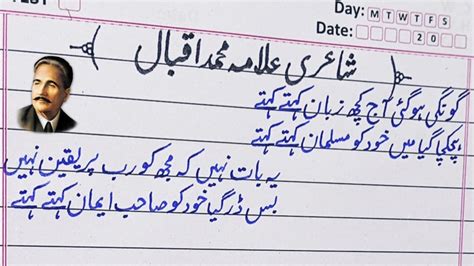 Day: M T W T F S
Date: 20
شاعری علامہ محمد اقبال
گونگی ہو گئی آج کچھ زبان کہتے کہتے
ہچکچا گیا میں خود کو مسلمان کہتے کہتے
یہ بات نہیں کہ مجھ کو رب پر یقین نہیں
بس ڈر گیا خود کو صاحب ایمان کہتے کہتے